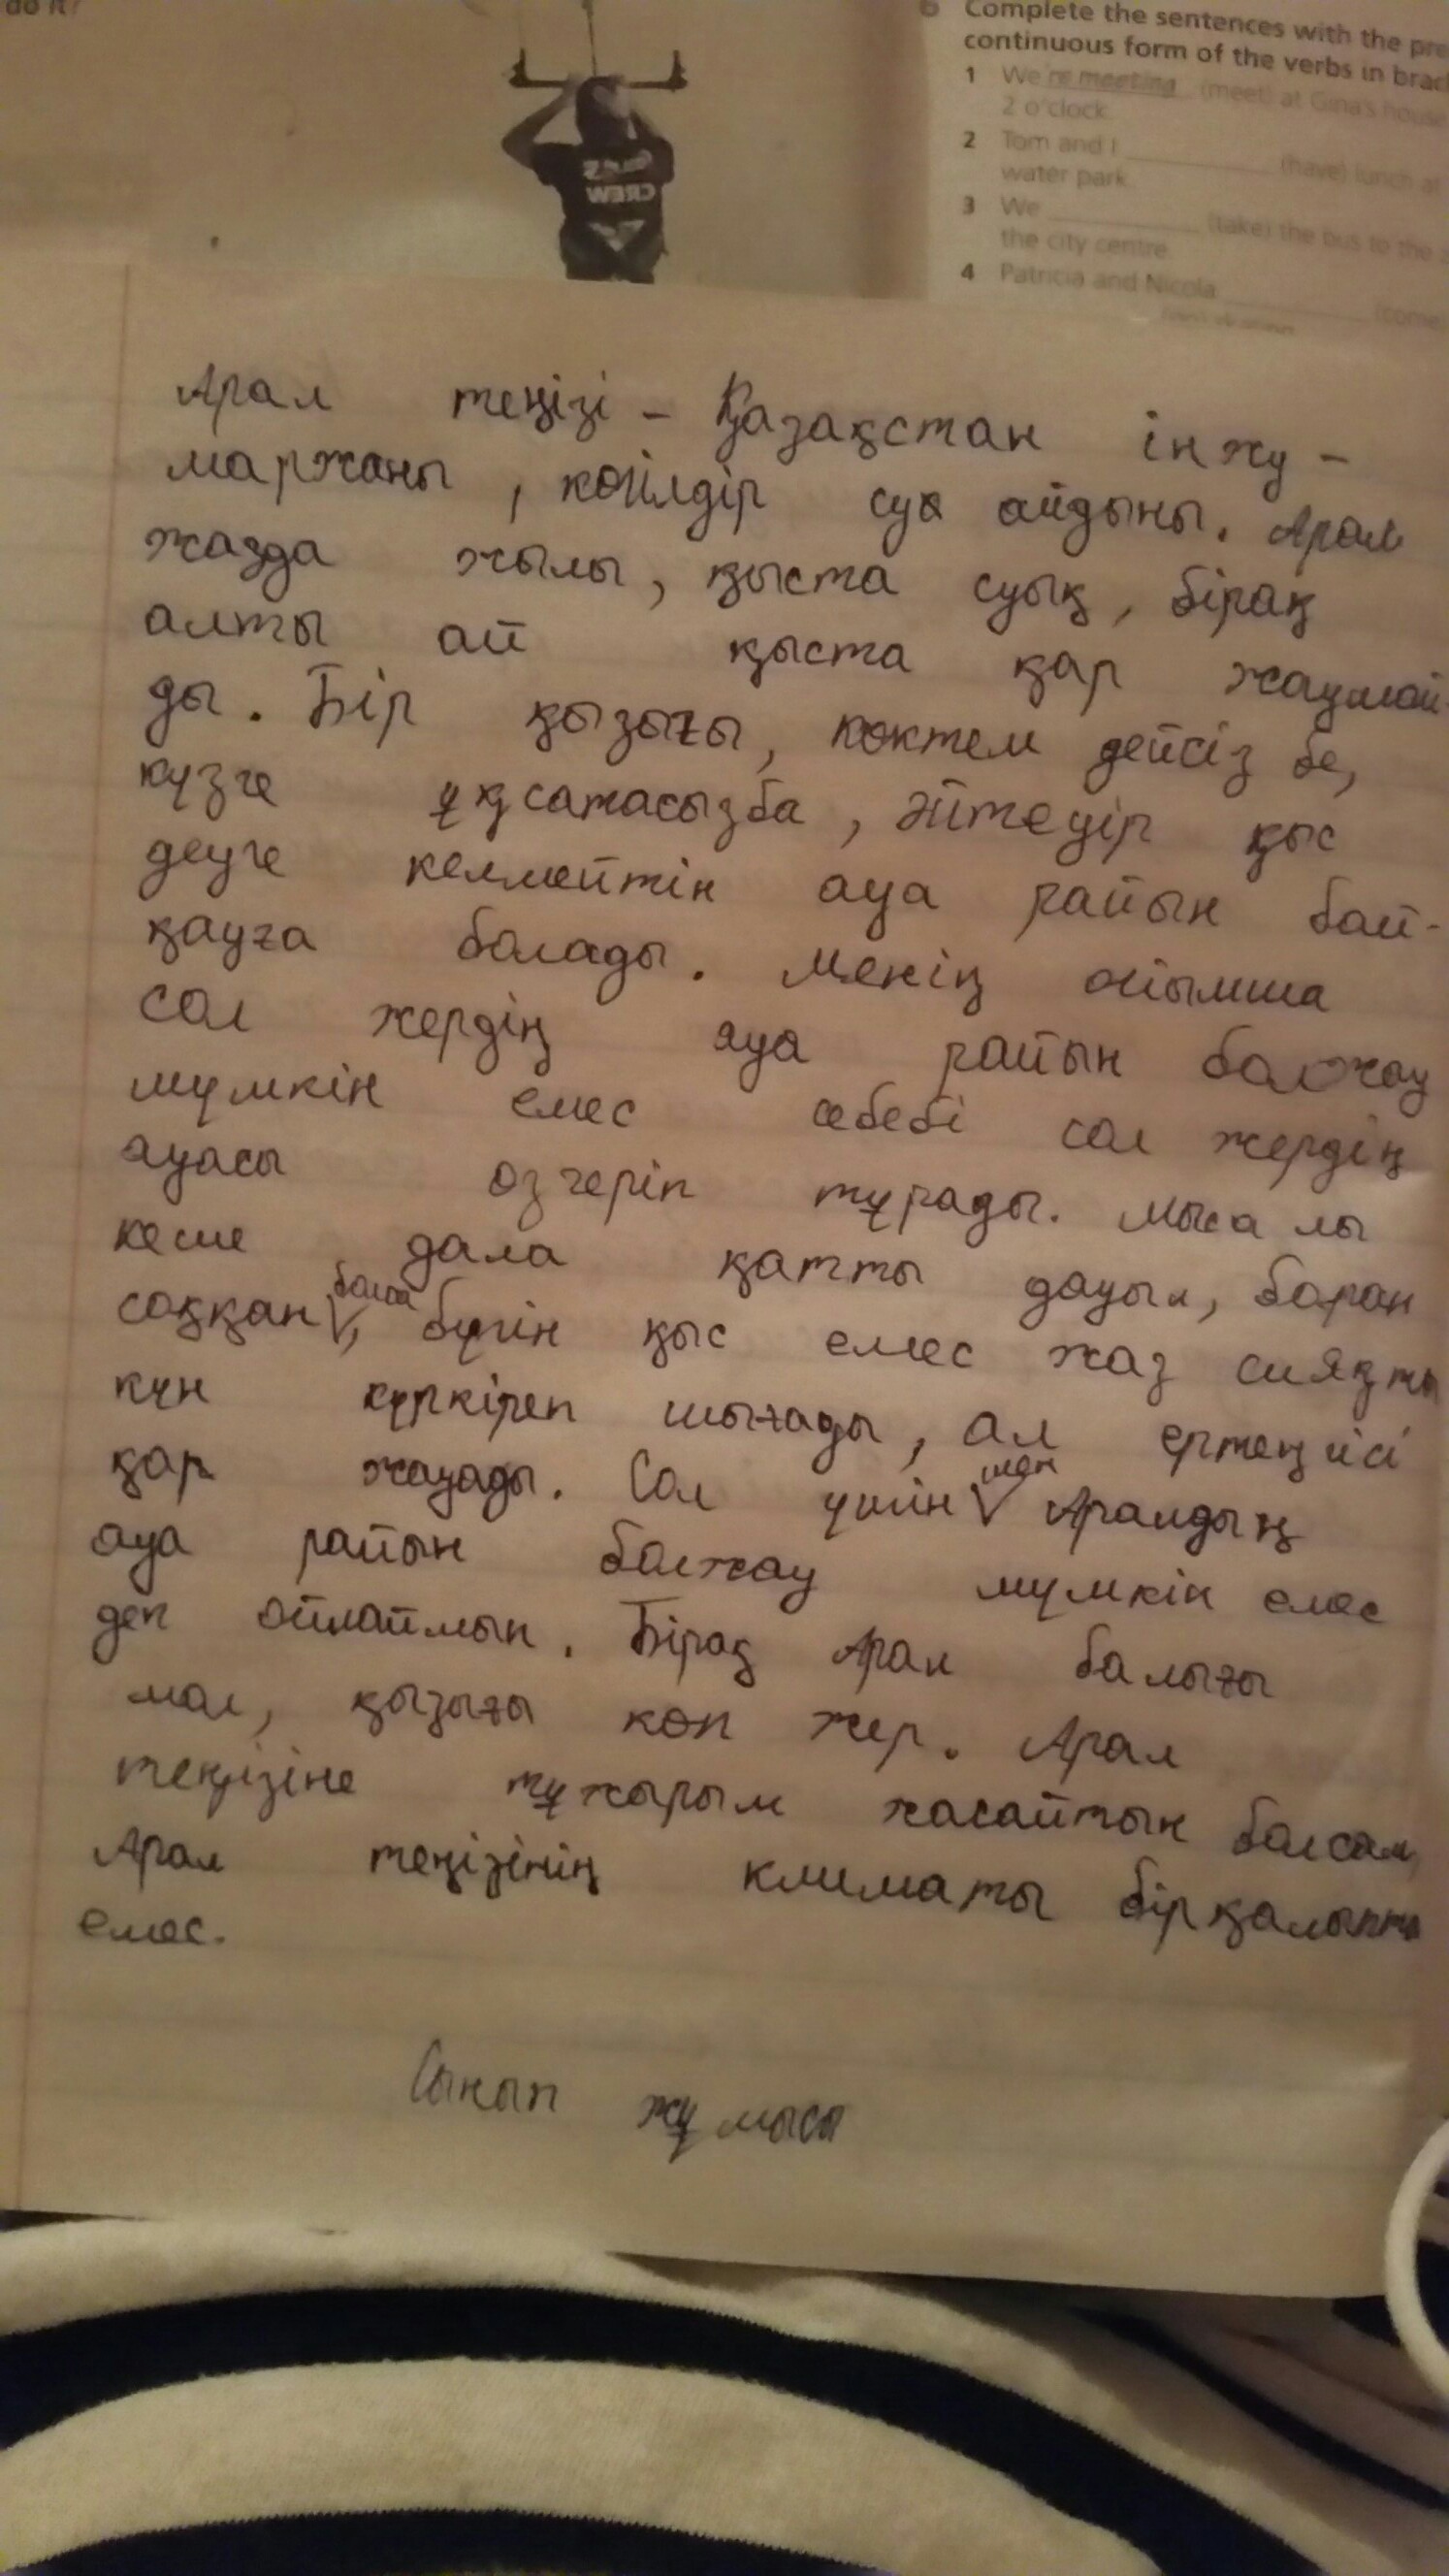 do it?
6 Complete the sentences with the pre
continuous form of the verbs in brac
1 We're meeting (meet) at Gina's house
2 o'clock.
2 Tom and I ________ (have) lunch at
water park.
3 We ________ (take) the bus to the
the city centre.
4 Patricia and Nicola ________ (come
CREW
Арал теңізі – Қазақстан інжу –
маржаны, көгілдір су айдыны. Арал
жазда жылы, қыста суық, бірақ
алты ай қыста қар жаумай-
ды. Бір қызығы, көктем дейсіз бе,
күзге ұқсатасызба, әйтеуір қыс
деуге келмейтін ауа райын бай-
қауға болады. Менің ойымша
сол жердің ауа райын болжау
мүмкін емес себебі сол жердің
ауасы өзгеріп тұрады. Мысалы
кеше дала қатты дауыл, боран
соққан болса, бүгін қыс емес жаз сияқты
күн күркіреп шығады, ал ертеңгісі
қар жауады. Сол үшін мен Аралдың
ауа райын болжау мүмкін емес
деп ойлаймын. Бірақ Арал балығы
мол, қызығы көп жер. Арал
теңізіне тұжырым жасайтын болсам,
Арал теңізінің климаты бірқалыпты
емес.
Сынып жұмысы